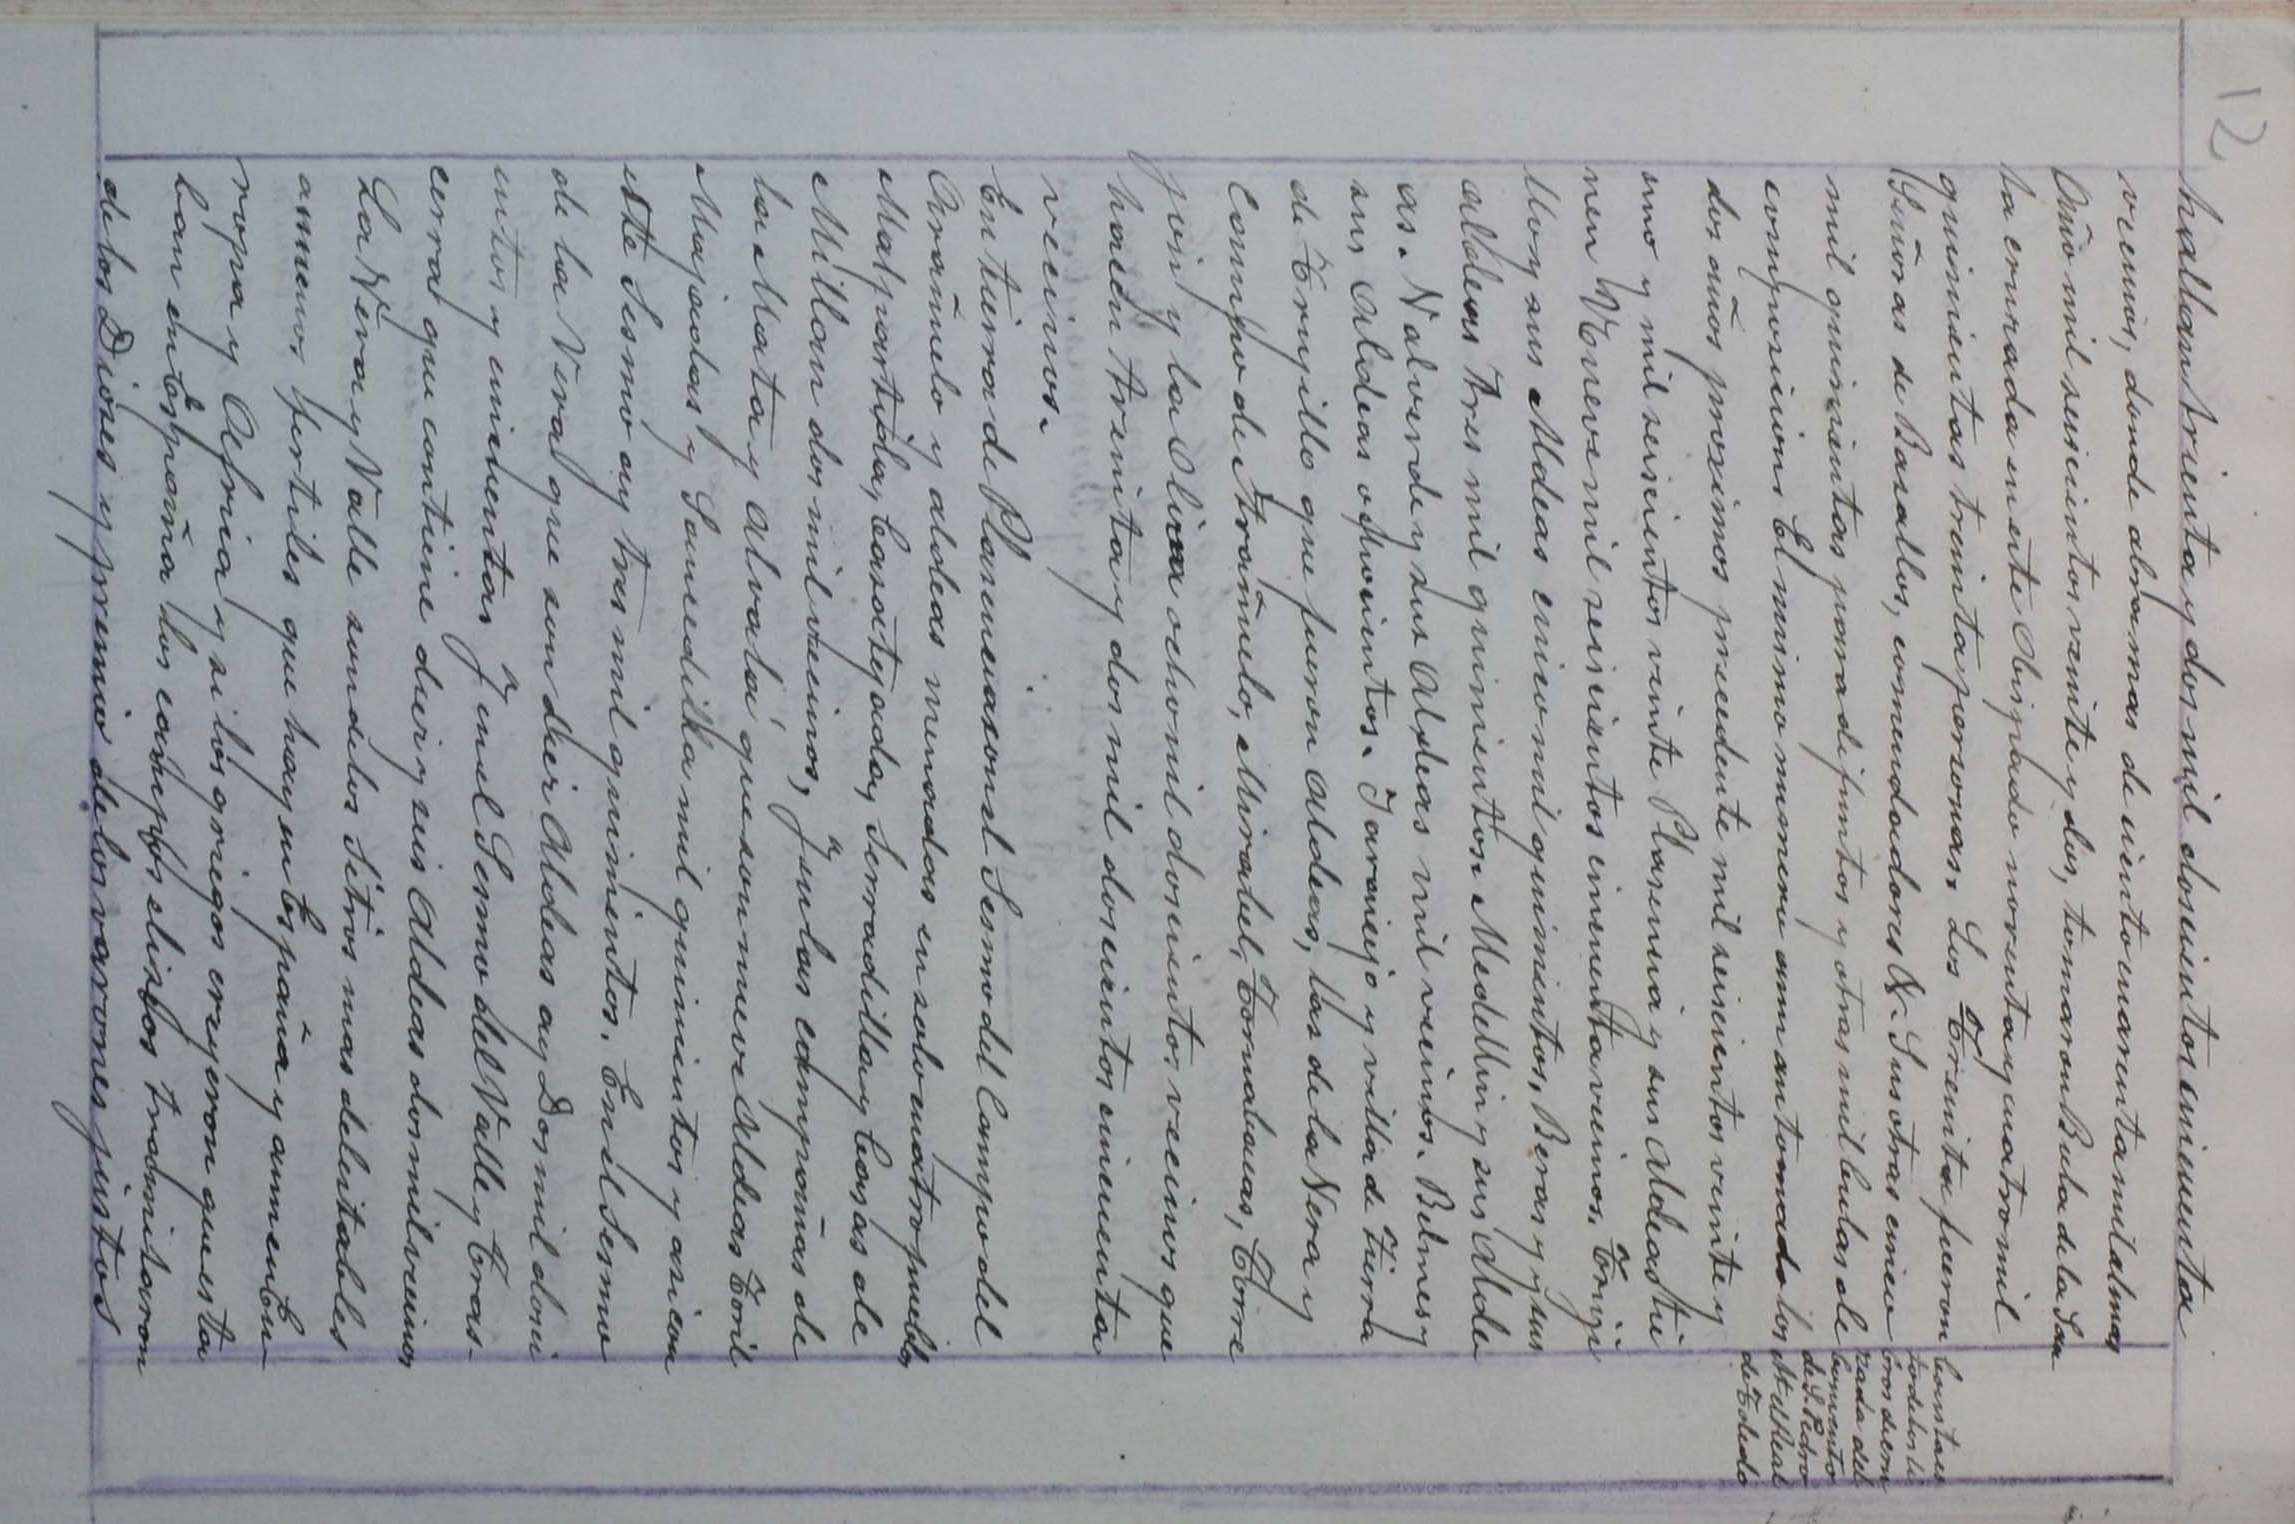 12
hallan trienta y dos mil doscientos cincuenta
vecinos, donde abra mas de ciento cuarenta mil almas
Año mil seiscientos veinte y dos, tomaron Bula de la San
ta cruzada en este Obispado noventa y cuatro mil
quinientas treinta personas. Los Treinta fueron
Señoras de Basallos, comendadores &. Sus otras cinco
mil quinientas para difuntos y otras mil bulas de
composicion. El mismo numero aun an tomado los
dos años procsimos precedente mil seiscientos veinte y
uno y mil seiscientos veinte Plasencia y sus Aldeas tie
nen Nueve mil seiscientos cincuenta vecinos. Truji
llo y sus Aldeas cinco mil quinientos, Beras y sus
aldeas tres mil quinientos. Medellin y sus Alde
as. Valverde y sus Aldeas mil vecinos. Belmes y
sus Aldeas ochocientos. Jaraicejo y villa de Tierra
de Trugillo que fueron Aldeas, las de la Vera y
Campo de Arañuelo, Mirabel, Tornabacas, Torre
join y la Oliva ocho mil doscientos vecinos que
hacen treinta y dos mil doscientos cincuenta
vecinos.
En tierra de Plasencia con el Sesmo del Campo del
Arañuelo y aldeas menadas en solo cuatro pueblos
Malpartida, Casatejada, Serradilla y Casas de
Millan dos mil vecinos, Y en las campañas de
la Mata y Alvalá que son nueve Aldeas Toril
Majadas y Saucedilla mil quinientos y asi con
este Sesmo ay tres mil quinientos. En el Sesmo
de la Vera que son diez Aldeas ay Dos mil dosci
entos y cincuentas Y en el Sesmo del Valle y Tras-
cerra que contiene diez y seis Aldeas dos mil vecinos
La Vera y Valle son delos Sitios mas deleitables
amenos, fertiles que hay en España y aun en Eu
ropa y Africa y si los griegos creyeron que esta
ban en España los campos elisios trasmitaron
de los Dioses y premio de los varones justos
Consta en
to de los Li
bros de con
tada del
Convento
de S. Pedro
Mr. el Real
de Toledo